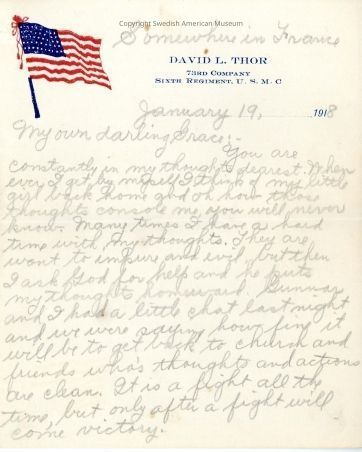 Copyright Swedish American Museum
Somewhere in France
DAVID L. THOR
73RD COMPANY
SIXTH REGIMENT, U. S. M. C
January 19, 1918
My own darling Grace;-
You are
constantly in my thoughts dearest. When
ever I get by myself I think of my little
girl back home and oh how those
thoughts console me you will never
know. Many times I have a hard
time with my thoughts. They are
want to impure and evil, but then
I ask God for help and he puts
my thoughts homeward. Gunnar
and I had a little chat last night
and we were saying how fine it
will be to get back to church and
friends who's thoughts and actions
are clean. It is a fight all the
time, but only after a fight will
come victory.